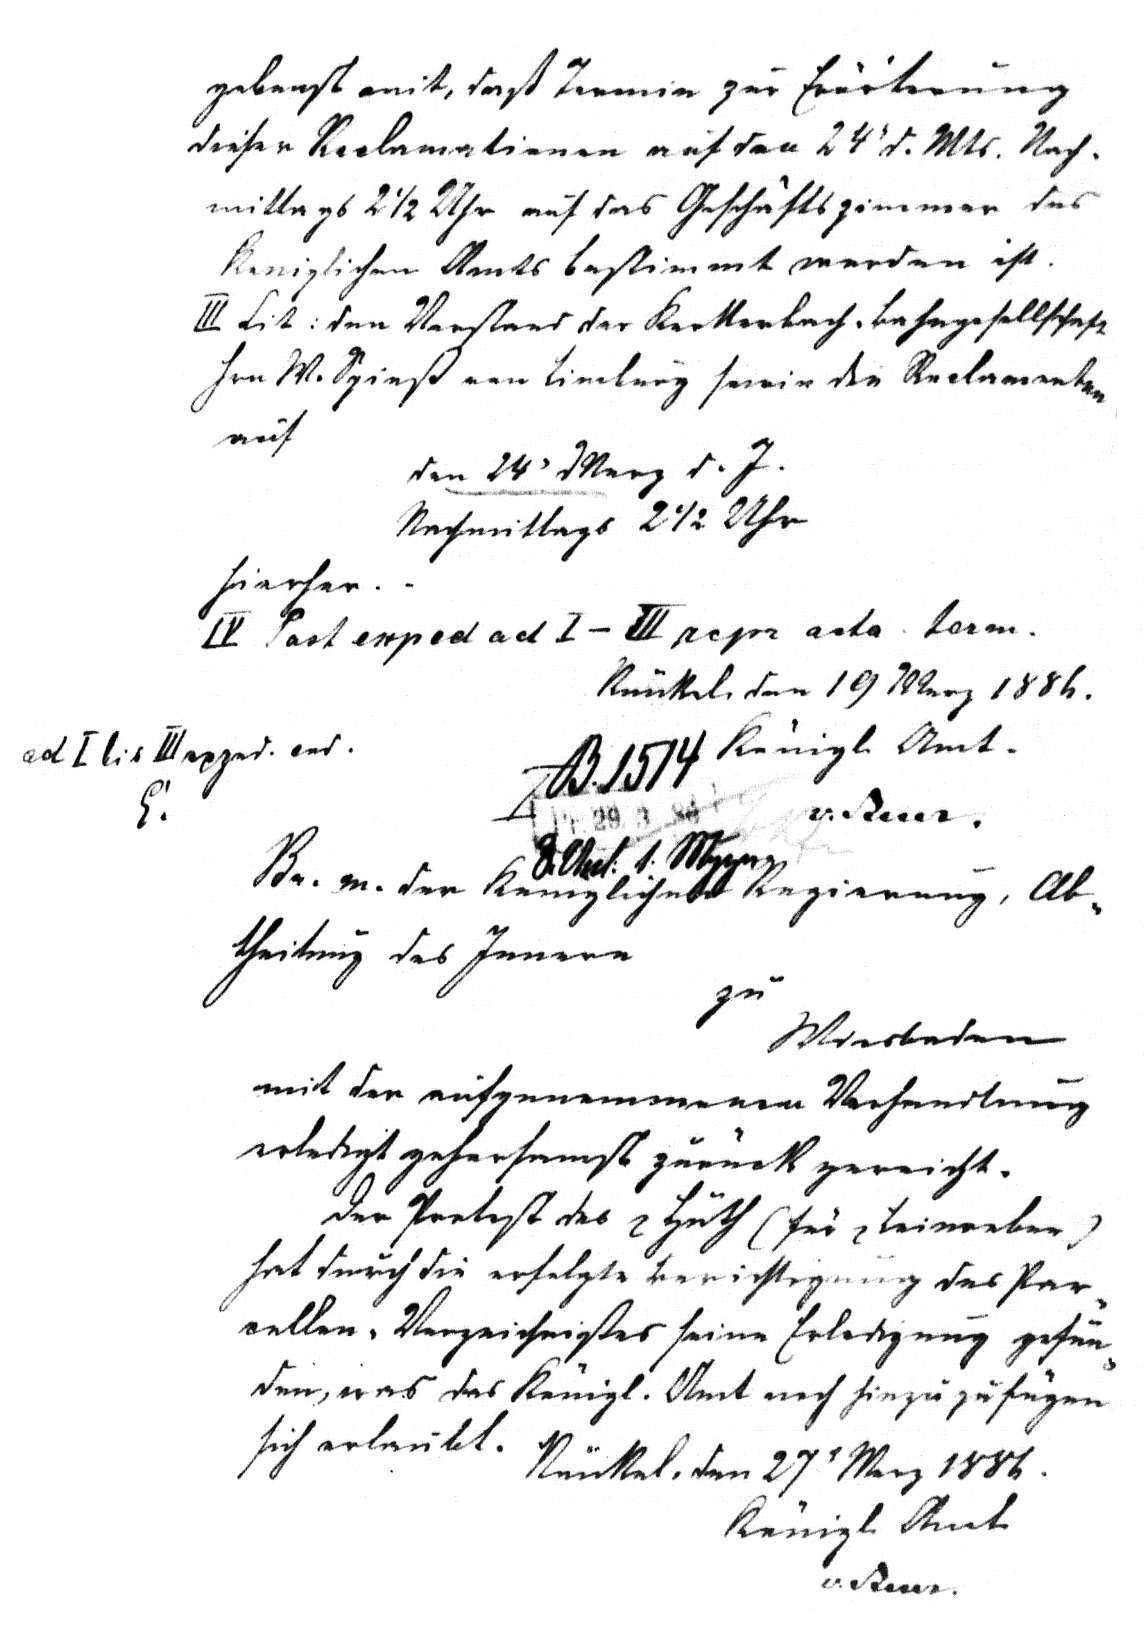 gebenst mit, daß Termin zur Erörterung
dieser Reclamationen auf den 24t d. Mts. Nach-
mittags 2 1/2 Uhr auf das Geschäftszimmer des
Königlichen Amts bestimmt worden ist.
III Cit: den Vorstand der Kerkerbach-bahngesellschaft
Hrn W. Spieß von Limburg sowie die Reclamanten
auf
den 24t März d. J.
Nachmittags 2 1/2 Uhr
hierher. -
IV Post exped ad I - III repr acta term.
Runkel, den 19 März 1886.
ad I bis III exped. eod.
Königl. Amt.
B. 1514
29. 3. 86
Br. m. der Königlichen Regierung, Ab-
theilung des Innern
zu
Wiesbaden
mit der aufgenommenen Verhandlung
erledigt gehorsamst zurück gereicht.
Der Protest des p Hüth (für p Leinweber)
hat durch die erfolgte berichtigung des Par-
cellen-Verzeichnißes seine Erledigung gefun-
den, was das Königl. Amt noch hinzuzufügen
sich erlaubt.
Runkel, den 27t März 1886.
Königl. Amt